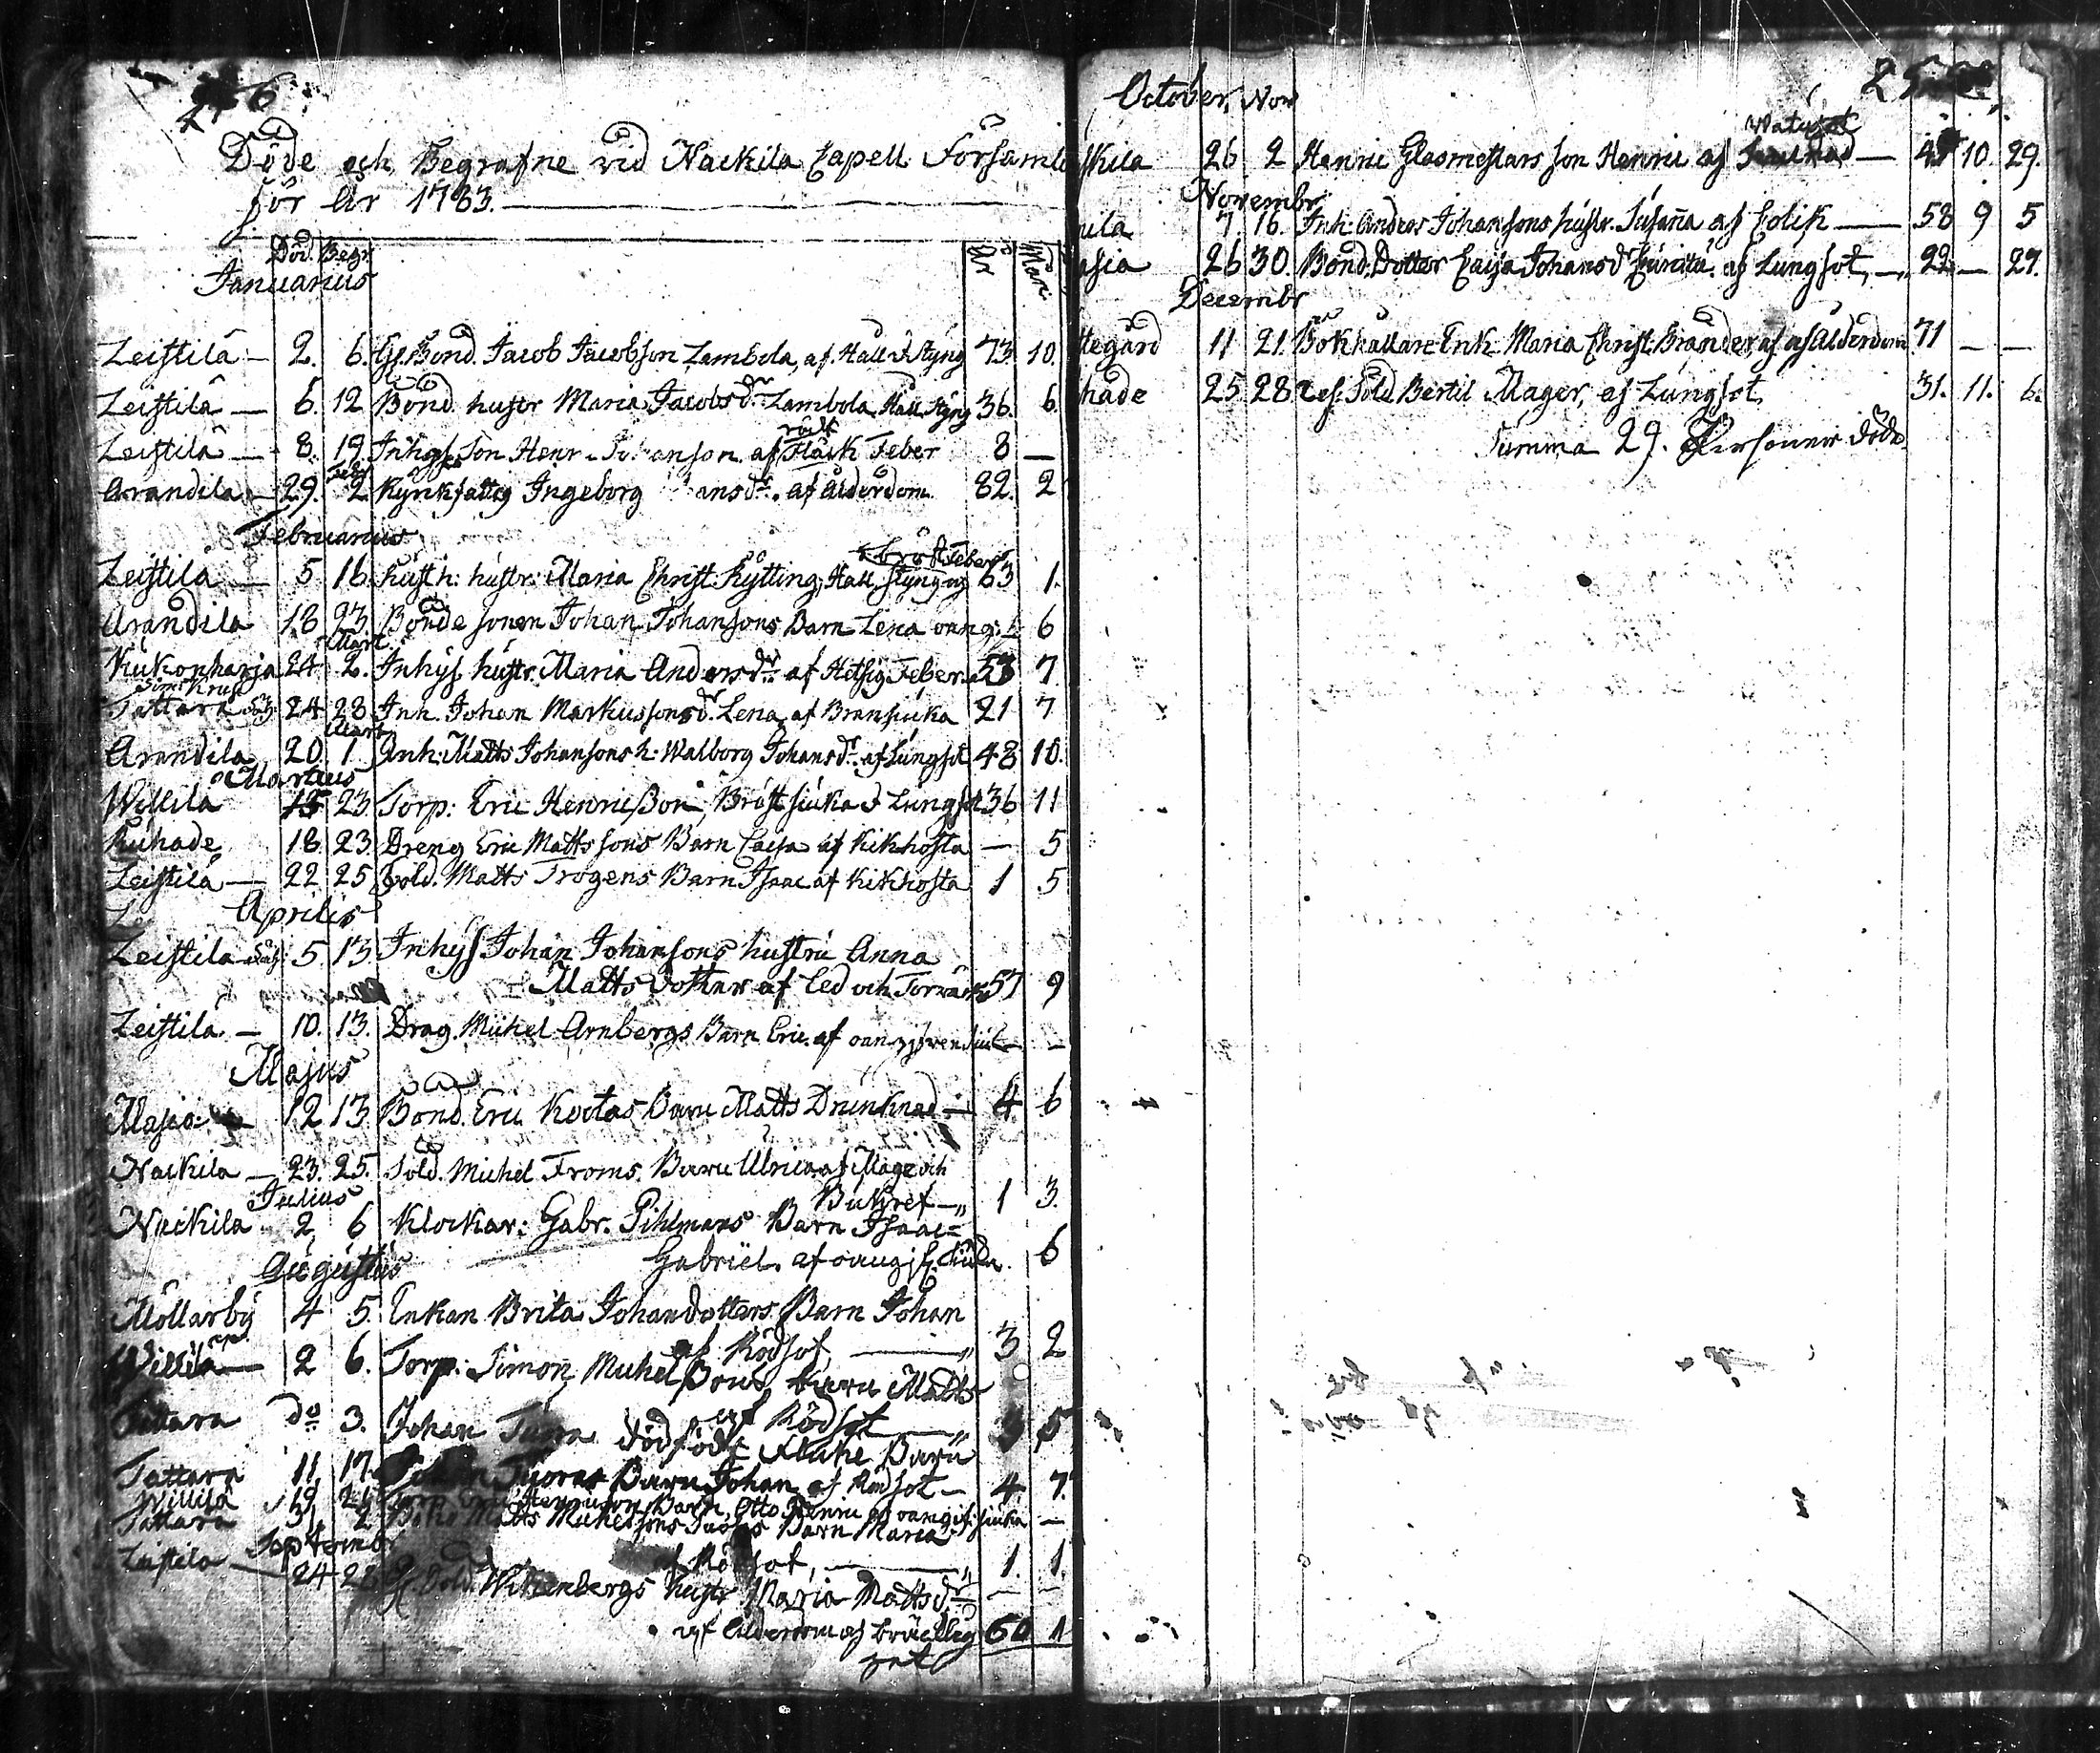 Döde och Begrafne vid Nackila Capell Församl
för År 1783.
Död. Begr. År Mån.
Januarius
Leistilä — 2. 6. Gl. Bond. Jacob Jacobsson Lambola, af Håll o Styng 73 10.
Leistilä — 6. 12 Bond. hustr Maria Jacobsdr Lambola Håll Styng 36. 6.
Leistilä — 8. 19 Inhys Son Henr. af Fläck Feber 8 —
Arandila — 29. Feb. 2. Kyrkfattig Ingeborg ansdr. af ålderdom. 82. 2
Februarius
Leistilä — 5 16. hustr: Maria Christ. Håll Styng 63 1.
Bröst Feber
Arandila 18 23 Bonde sonen Johan Johansons Barn Lena oang: 6
Mart.
Kukonharja 24 2. Inhys. hustr. Maria Andersdr. af Hetsig Feber 53 7
Tattara 24 28 Inh. Johan Markussons d. Lena af Bränsiuka 21 7
Mart.
Arandila 20. 1 Inh: Matts Johansons h: Walborg Johansdr. af Lungsot 48 10.
Martius
Willilä 15 23 Torp: Eric Henricsson Bröstsiuka o Lungsot 36 11
Ruhade 18 23 Dreng Eric Mattssons Barn Caisa af Kikhosta — 5
Leistilä — 22 25 Sold. Matts Trogens Barn Isaac af Kikhosta 1 5
Aprilis
Leistila 5 13 Inhys Johan Johansons hustru Anna
Matts dotter af Led och Torrvärk 57 9
Leistilä — 10. 13. Drag. Michel Arnbergs Barn Eric. af oangifven siuk — —
Majus
Masia 12 13 Bond. Eric Kortas Barn Matts Drunknad — 4 6
Nackila — 23. 25. Sold. Michel Froms. Barn Ulrica af Mage och
Bukref — 1 3.
Julius
Nackila 2 6 Klockar: Gabr. Pihlmans Barn Isaac
Gabriel. af oangif. siuka. 6
Augustus
Möllarby 4 5. Enkan Brita Johansdotters Barn Johan
af Rödsot, — 3 2
Willilä — 2 6. Torp. Simon Michelssons barn Matts
af Rödsot — 5
Tattara do 3. Johan Tuora dödfödt Flicke Barn
Tattara 11 17 Tuoras Barn Johan af Rödsot — 4 7.
Willilä 19 Torp. Eric Barn Otto Henric af oangif. siuka —
Tattara 31 2 Matts Michelssons Barn Maria
af Rödsot, — 1. 1.
September
Leistila — 24 Sold. Wittenbergs hustr Maria Mattsdr. — —
af ålderdom och bräcklig 60 1
het
October, Nov
skila 26 2 Henric Glasmestars son Henric af Watusot — 10. 29.
Novembr
uila 7 16. Inh. Anders Johansons hustr. Susanna af Colik — 58 9 5
asia 26 30. Bond. Dotter Caisa Johansd af Lungsot, — 22 — 27.
Decembr
ttegård 11 21. Bokhållare Enk. Maria Christ. Brander, af ålderdom 71 — —
hade 25 28 Sold. Bertil Mager, af Lungsot 31. 11. 6.
Summa 29. Personer döde